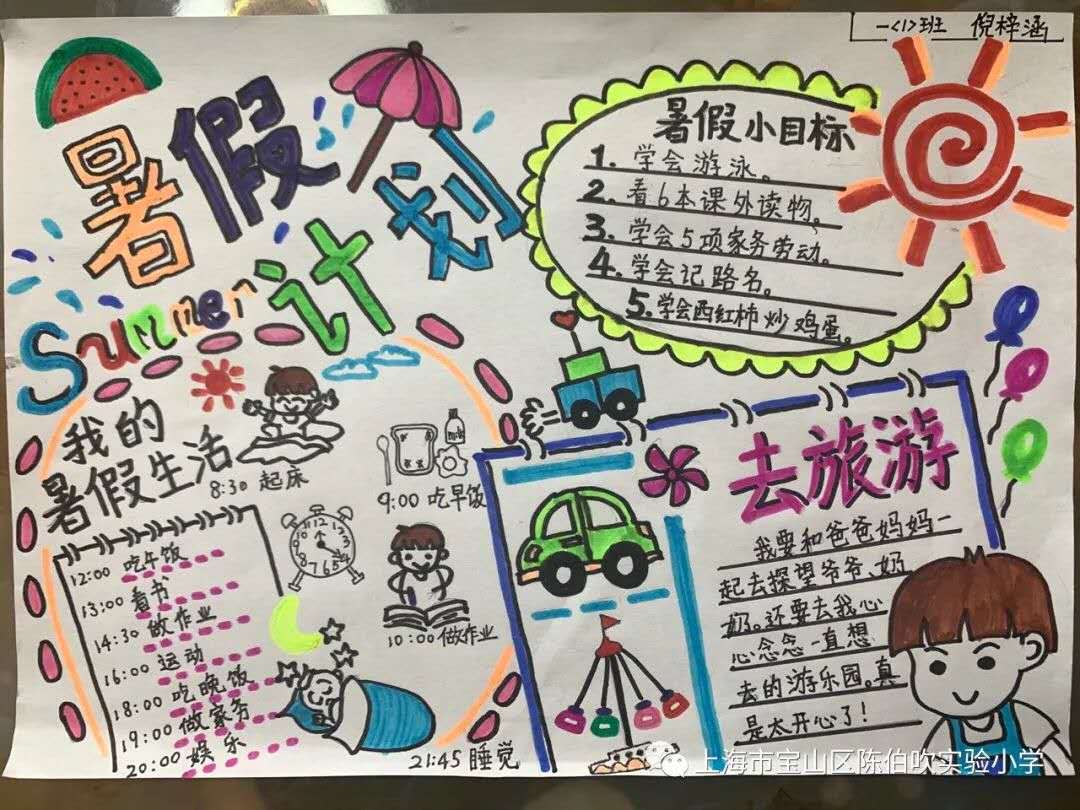 一<1>班 倪梓涵
暑假
计划
Summer
暑假小目标
1. 学会游泳。
2. 看6本课外读物。
3. 学会5项家务劳动。
4. 学会记路名。
5. 学会西红柿炒鸡蛋。
我的
暑假生活
8:30 起床
9:00 吃早饭
10:00 做作业
12:00 吃午饭
13:00 看书
14:30 做作业
16:00 运动
18:00 吃晚饭
19:00 做家务
20:00 娱乐
21:45 睡觉
12 1 2 3 4 5 6 7 8 9 10 11
去旅游
我要和爸爸妈妈一
起去探望爷爷、奶
奶。还要去我心
心念念一直想
去的游乐园。真
是太开心了!
上海市宝山区陈伯吹实验小学